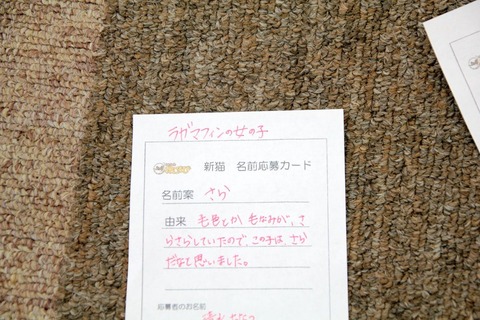 ラガマフィンの女の子
新猫 名前応募カード
名前案 さら
由来 毛色とか、毛なみが、さ
らさらしていたので、この子は、さら
だなと思いました。
応募者のお名前